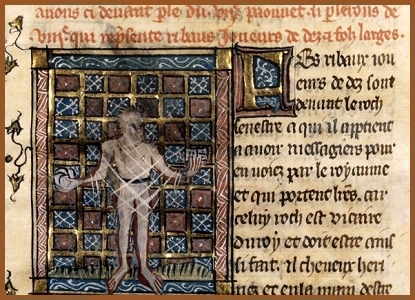 auons ci deuant ple du paonnet. si plerons de
viijᵉ qui represente ribaus joueurs de dez et fols larges.
Les ribaux iou
eurs de dez sont
deuant le roch
senestre a qui il apptient
a auoir messagiers pour
enuoier par le royaume
et qui portent lres. car
celuy roch est vicaire
du roy et doit estre
si fait. il cheueux heri
ciez et en la main destre